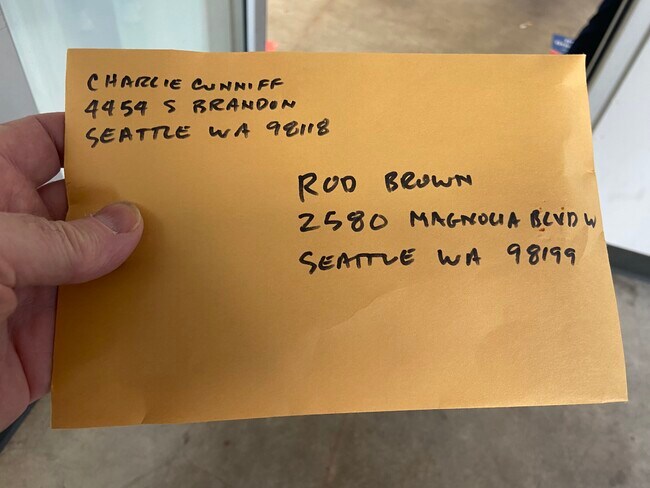 CHARLIE CUNNIFF
4454 S BRANDON
SEATTLE WA 98118
ROD BROWN
2580 MAGNOLIA BLVD W
SEATTLE WA 98199